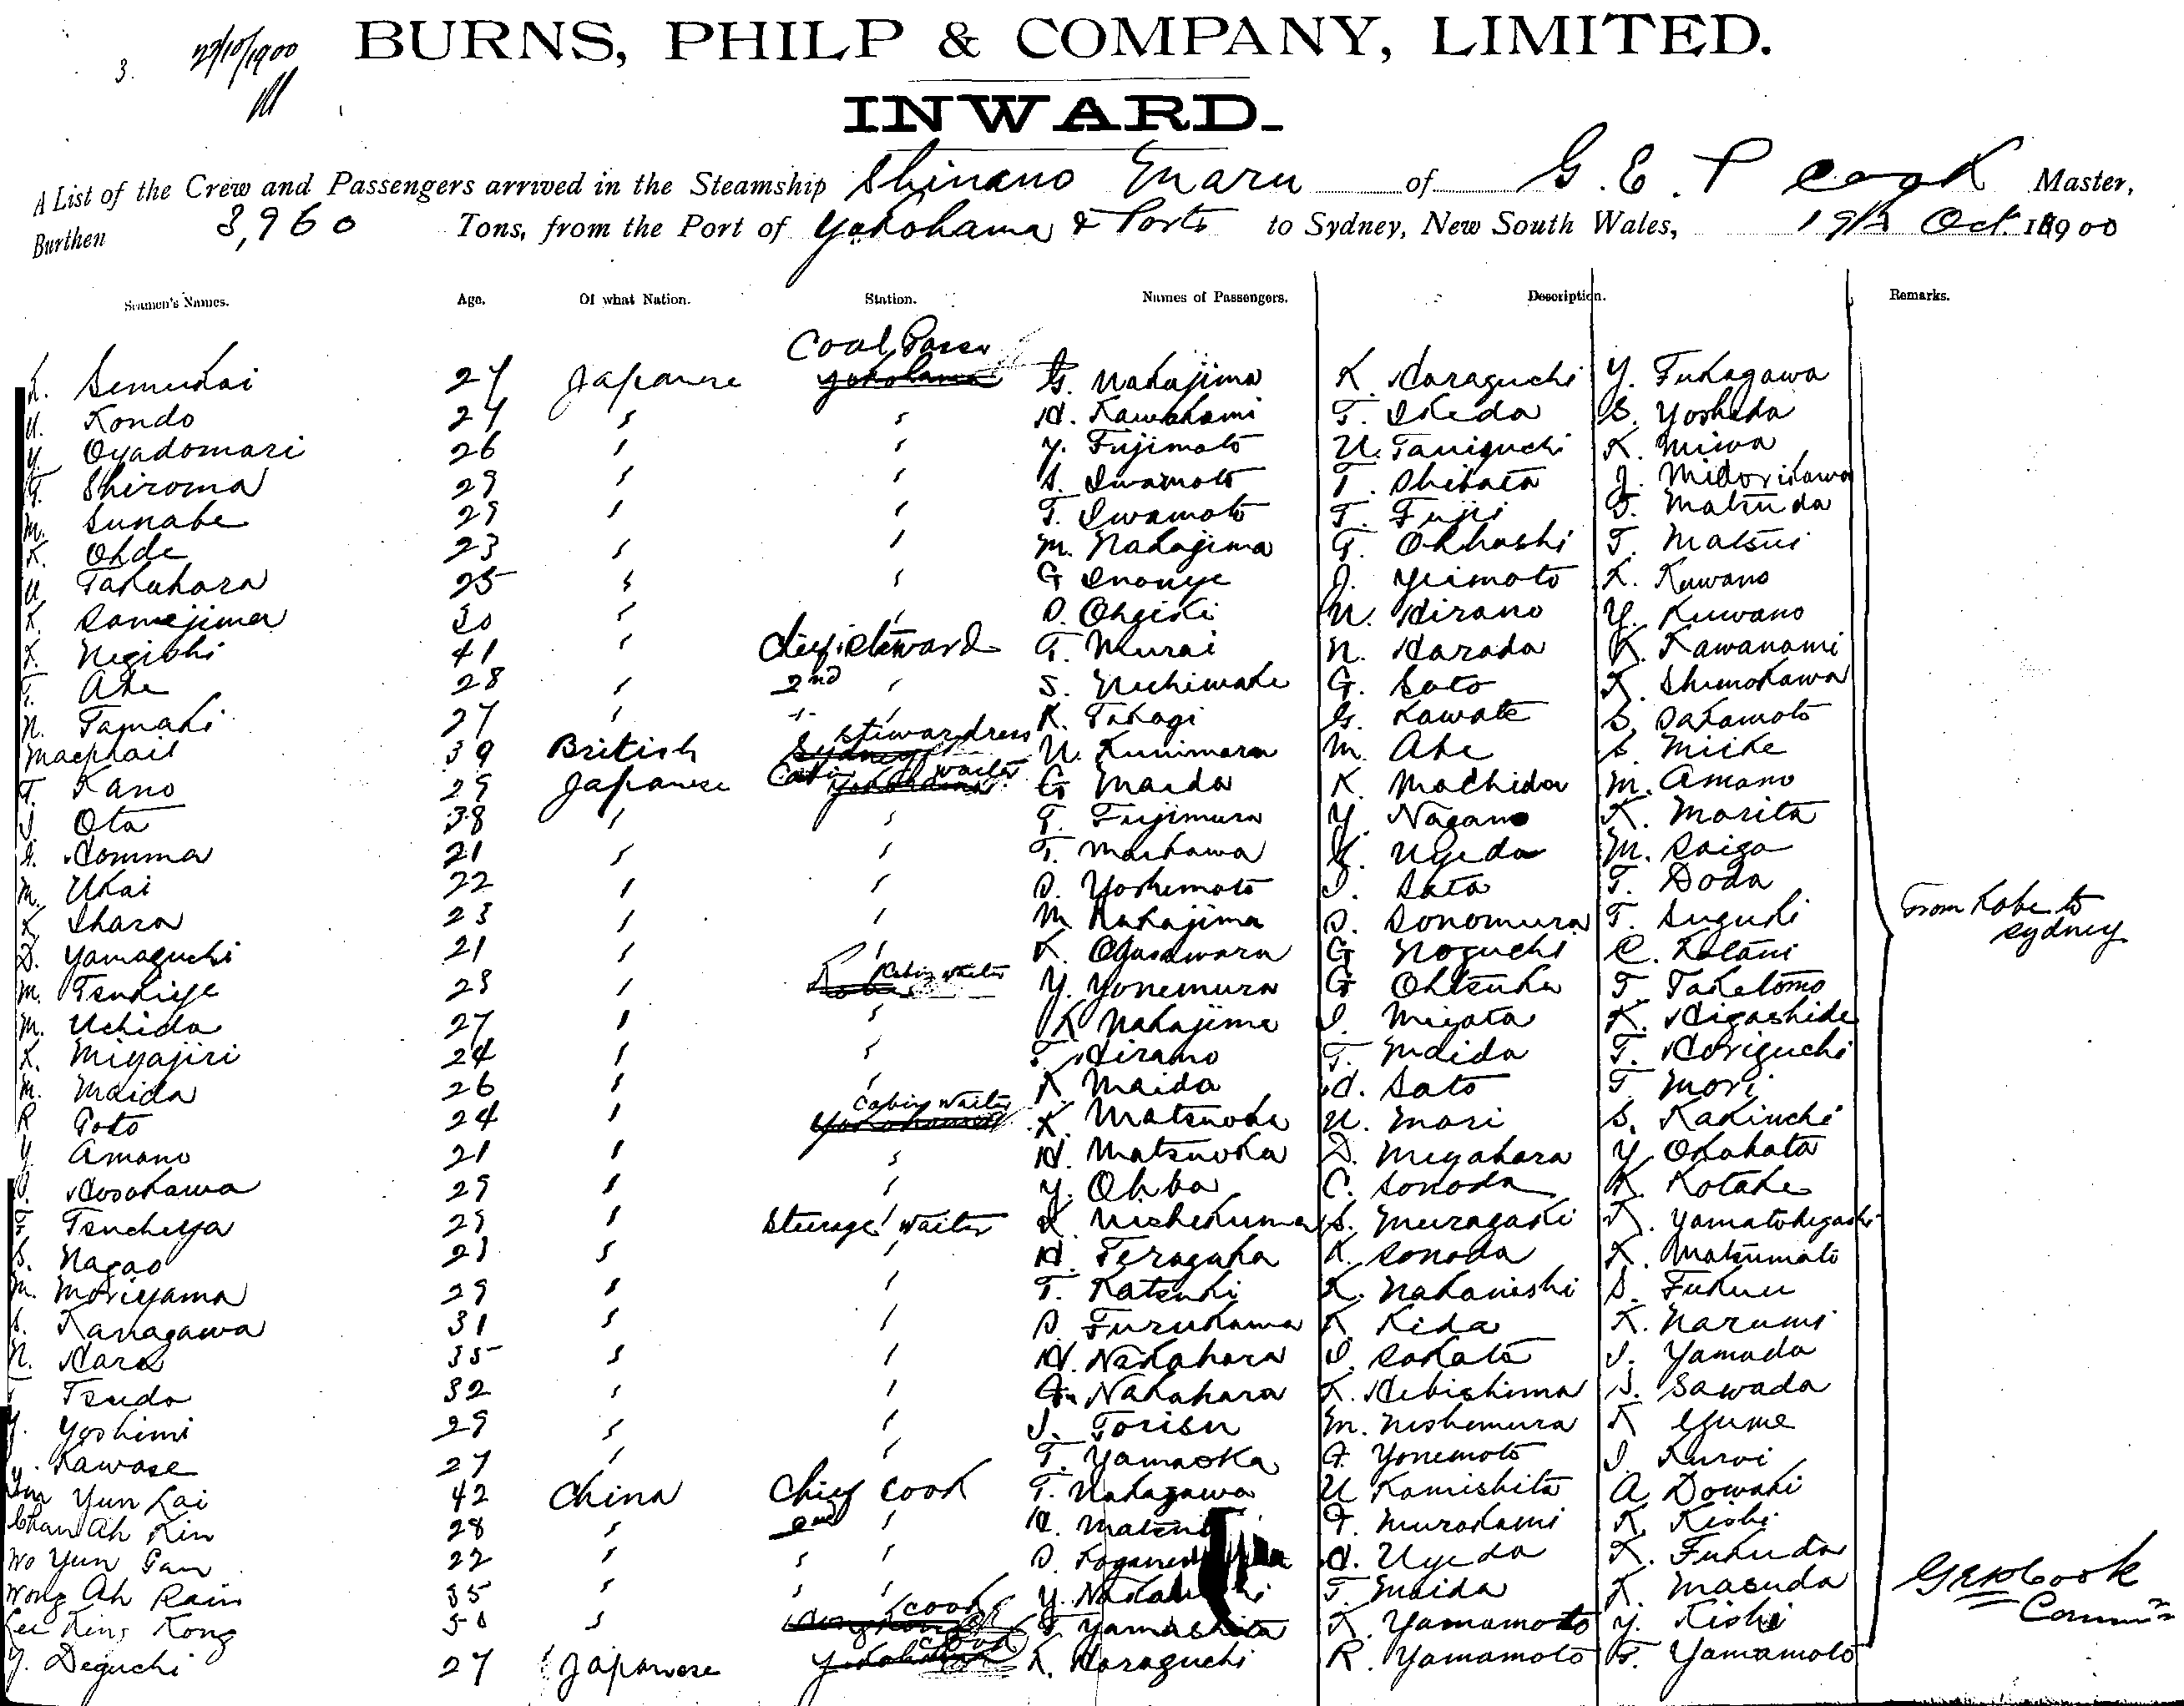 3. 22/10/1900
BURNS, PHILP & COMPANY, LIMITED.
INWARD.
A List of the Crew and Passengers arrived in the Steamship Shinano Maru of G. E. P Cook Master,
Burthen 3,960 Tons, from the Port of Yokohama & Ports to Sydney, New South Wales, 19th Oct. 1900
Seamen's Names. Age. Of what Nation. Station. Names of Passengers. Description. Remarks.
Coal Passer
K. Semukai 27 Japanese Yokohama G. Nakajima K. Haraguchi Y. Fukagawa
U. Kondo 27 " " H. Kawakami T. Ikeda S. Yoshida
Y. Oyadomari 26 " " Y. Fujimoto U. Taniguchi K. Miwa
T. Shiroma 29 " " S. Iwamoto T. Shibata J. Midorikawa
M. Sunabe 29 " " T. Iwamoto T. Fujii T. Matsuda
K. Ohde 23 " " M. Nakajima T. Ohhashi T. Matsui
U. Takahara 25 " " G Inouye J. Yeimoto K. Kuwano
K. Samejima 30 " " S. Ohgiki U. Hirano Y. Kuwano
K. Negishi 41 " Chief Steward T. Murai N. Harada K. Kawanami
T. Abe 28 " 2nd " S. Nichiwaki G. Sato K. Shimokawa
N. Tamaki 27 " " " K. Takagi G. Kawate S. Sakamoto
Macphail 39 British Stewardress Sydney U. Kunimara M. Abe S. Miike
T. Kano 29 Japanese Cabin waiter Yokohama G Maida K. Machida M. Amano
Ota 38 " " T. Fujimura Y. Nagano K. Morita
Homma 21 " " T. Maikawa K. Uyeda M. Saiga
M. Ukai 22 " " S. Yoshimoto I. Sata T. Doda
K. Ihara 23 " " M Nakajima S. Sonomura T. Suguki
D. Yamaguchi 21 " " K. Ogasawara G Noguchi C. Kotani
M. Tsukiye 23 " Kobe Cabin waiter Y. Yonemura G Ohtsuka T. Taketomo
M. Uchida 27 " " K Nakajima I. Miyata K. Higashide
K. Miyajiri 24 " " T. Hirano T. Maida T. Horiguchi
M. Maida 26 " " K Maida H. Sato T Mori
R Goto 24 " Cabin waiter Yokohama K. Matsuoka U. Mori S. Kakiuchi
Y Amano 21 " " H. Matsuoka D. Miyahara Y Okahata
Hosokawa 29 " " Y. Ohba C. Sonoda K Kotake
T Tsuchiya 29 " Steerage waiter K Nishikuma S. Muragaki K. Yamatohigashi
S. Nagao 21 " " H. Teragaka K. Sonoda K. Matsumoto
M. Moriyama 29 " " T. Katsuki K. Nakanishi S. Fukui
S. Kanagawa 31 " " S Furukawa K Kida K. Narumi
N. Hara 35 " " H. Nakahara I. Sakata I. Yamada
Tsuda 32 " " Nakahara K. Hebishima S. Sawada
Y. Yoshimi 29 " " I. Torisu M. Nishimura K Yume
Kawase 27 " " T. Yamaoka Yonemoto I. Kuroi
Yun Kai 42 China Chief Cook T. Nakagawa U Kamishita A Dowaki
Chan Ah Kin 28 " 2nd " H. T. Murakami K. Kishi
Wo Yun Gan 22 " " " S. H. Uyeda K. Fukuda
Wong Ah Rain 35 " " " Y. T. Maida K. Masuda
Lee King Kong 50 " Hong Kong Cook T Yamashita K. Yamamoto Y. Kishi
Y. Deguchi 27 Japanese Yokohama Cook K. Haraguchi R. Yamamoto T. Yamamoto
From Kobe to
Sydney
G E P Cook